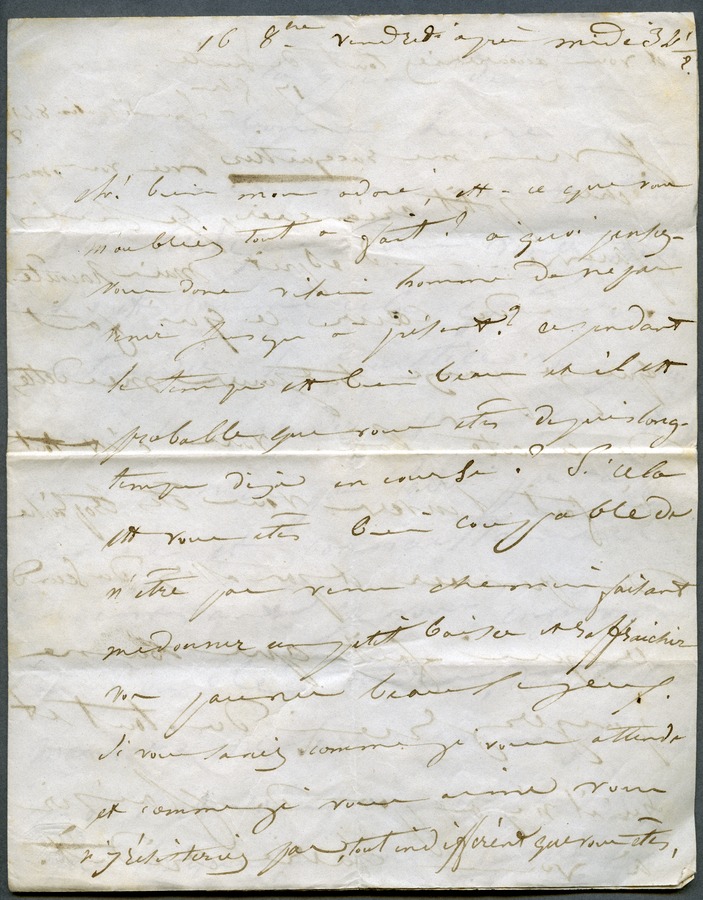 16 8bre vendredi après midi 3h 1/2
Eh! bien mon adoré, est-ce que vous
m'oubliez tout à fait? à quoi pensez-
vous donc vilain homme de ne pas
venir jusqu'à présent? cependant
le temps est bien beau et il est
probable que vous êtes depuis long-
temps déjà en course? Si cela
est vous êtes bien coupable de
n'être pas venu chemin faisant
me donner un petit baiser et rafraîchir
vos pauvres beaux yeux.
Si vous saviez comme je vous attends
et comme je vous aime vous
n'y résisteriez pas, tout indifférent que vous êtes,